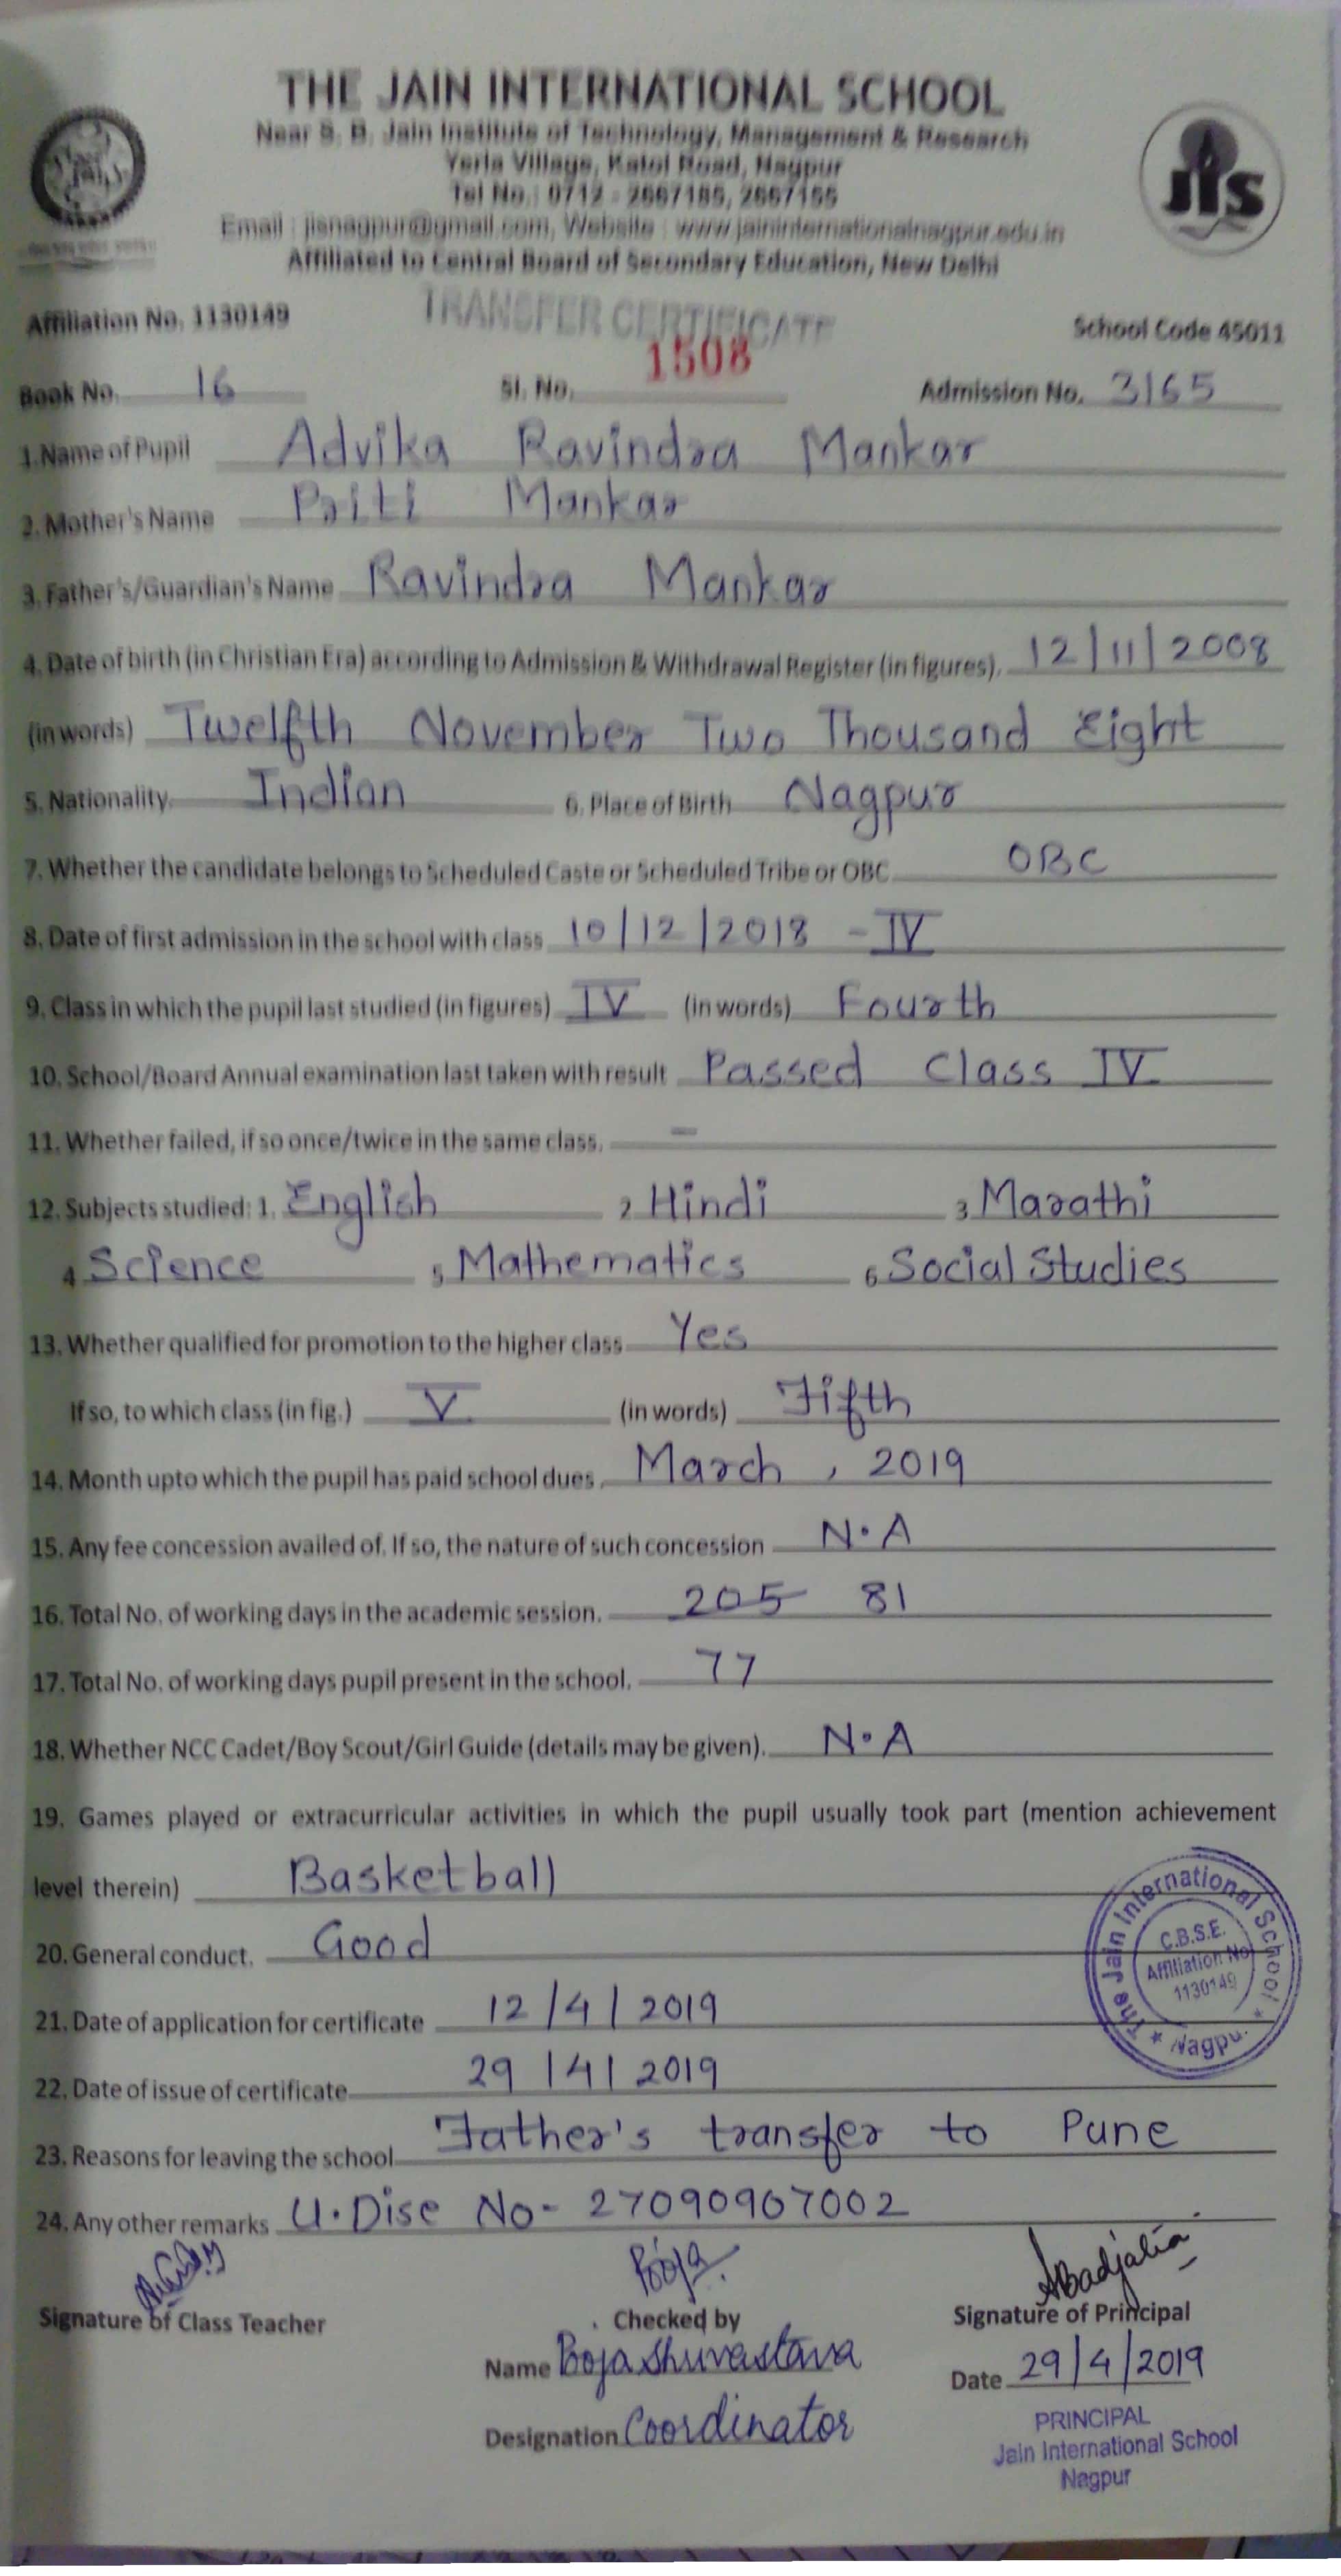 THE JAIN INTERNATIONAL SCHOOL
Near S. B. Jain Institute of Technology, Management & Research
Yerla Village, Katol Road, Nagpur
Tel No. : 0712 - 2667185, 2667155
Email : jisnagpur@gmail.com, Website : www.jaininternationalnagpur.edu.in
Affiliated to Central Board of Secondary Education, New Delhi
jIs
TRANSFER CERTIFICATE
Affiliation No. 1130149 School Code 45011
Book No. 16 Sl. No. 1508 Admission No. 3165
1. Name of Pupil Advika Ravindra Mankar
2. Mother's Name Priti Mankar
3. Father's/Guardian's Name Ravindra Mankar
4. Date of birth (in Christian Era) according to Admission & Withdrawal Register (in figures). 12/11/2008
(in words) Twelfth November Two Thousand Eight
5. Nationality. Indian 6. Place of Birth Nagpur
7. Whether the candidate belongs to Scheduled Caste or Scheduled Tribe or OBC OBC
8. Date of first admission in the school with class 10/12/2018 - IV
9. Class in which the pupil last studied (in figures) IV (in words) Fourth
10. School/Board Annual examination last taken with result Passed Class IV
11. Whether failed, if so once/twice in the same class. -
12. Subjects studied: 1. English 2 Hindi 3 Marathi
4 Science 5 Mathematics 6 Social Studies
13. Whether qualified for promotion to the higher class Yes
If so, to which class (in fig.) V (in words) Fifth
14. Month upto which the pupil has paid school dues. March, 2019
15. Any fee concession availed of. If so, the nature of such concession N.A
16. Total No. of working days in the academic session. 205 81
17. Total No. of working days pupil present in the school. 77
18. Whether NCC Cadet/Boy Scout/Girl Guide (details may be given). N.A
19. Games played or extracurricular activities in which the pupil usually took part (mention achievement
level therein) Basketball
20. General conduct. Good
The Jain International School * Nagpu. *
C.B.S.E.
Affiliation No
1130149
21. Date of application for certificate 12/4/2019
22. Date of issue of certificate 29/4/2019
23. Reasons for leaving the school Father's transfer to Pune
24. Any other remarks U.Dise No- 27090907002
Pooja ABadjatia
Signature of Class Teacher Checked by Signature of Principal
Name Pooja Shrivastava Date 29/4/2019
Designation Coordinator
PRINCIPAL
Jain International School
Nagpur